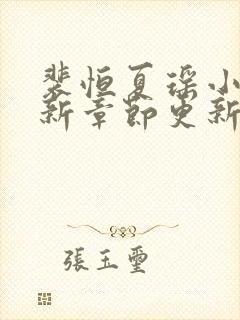 裴恒夏瑶小
新章節更新
張玉璽